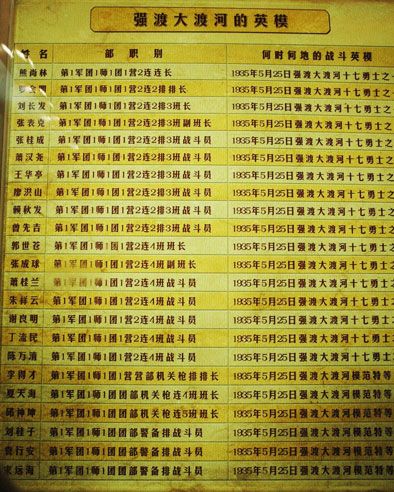 强渡大渡河的英模
姓名 部职别 何时何地的战斗英模
熊尚林 第1军团1师1团1营2连连长 1935年5月25日强渡大渡河十七勇士之
第1军团1师1团1营2连2排排长 1935年5月25日强渡大渡河十七勇士之
刘长发 第1军团1师1团1营2连2排3班长 1935年5月25日强渡大渡河十七勇士之
张表克 第1军团1师1团1营2连2排3班副班长 1935年5月25日强渡大渡河十七勇士之
张桂成 第1军团1师1团1营2连2排3班战斗员 1935年5月25日强渡大渡河十七勇士之
萧汉尧 第1军团1师1团1营2连2排3班战斗员 1935年5月25日强渡大渡河十七勇士之
王华亭 第1军团1师1团1营2连2排3班战斗员 1935年5月25日强渡大渡河十七勇士之
廖洪山 第1军团1师1团1营2连2排3班战斗员 1935年5月25日强渡大渡河十七勇士之
赖秋发 第1军团1师1团1营2连2排3班战斗员 1935年5月25日强渡大渡河十七勇士之
曾先吉 第1军团1师1团1营2连2排3班战斗员 1935年5月25日强渡大渡河十七勇士之
郭世苍 第1军团1师1团1营2连4班班长 1935年5月25日强渡大渡河十七勇士之
张成球 第1军团1师1团1营2连4班副班长 1935年5月25日强渡大渡河十七勇士之
萧桂兰 第1军团1师1团1营2连4班战斗员 1935年5月25日强渡大渡河十七勇士之
朱祥云 第1军团1师1团1营2连4班战斗员 1935年5月25日强渡大渡河十七勇士之
谢良明 第1军团1师1团1营2连4班战斗员 1935年5月25日强渡大渡河十七勇士之
丁流民 第1军团1师1团1营2连4班战斗员 1935年5月25日强渡大渡河十七勇士之
陈万清 第1军团1师1团1营2连4班战斗员 1935年5月25日强渡大渡河十七勇士之
李得才 第1军团1师1团1营营部机关枪排排长 1935年5月25日强渡大渡河模范特等
夏天海 第1军团1师1团团部机关枪连4班班长 1935年5月25日强渡大渡河模范特等
邱神坤 第1军团1师1团团部机关枪连5班班长 1935年5月25日强渡大渡河模范特等
刘桂子 第1军团1师1团团部警备排战斗员 1935年5月25日强渡大渡河模范特等
袁行安 第1军团1师1团团部警备排战斗员 1935年5月25日强渡大渡河模范特等
宋远海 第1军团1师1团团部警备排战斗员 1935年5月25日强渡大渡河模范特等